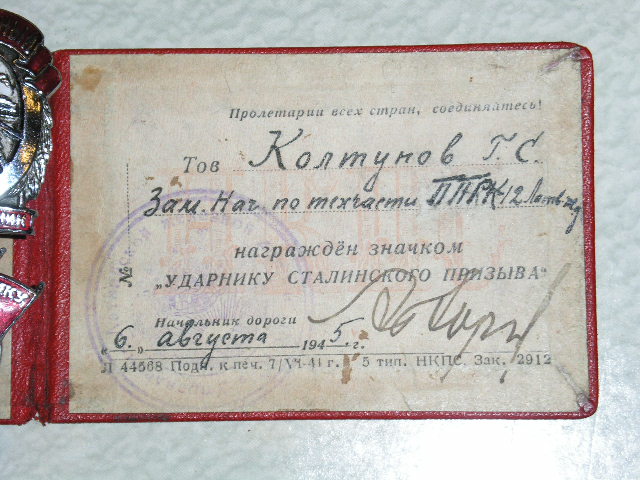 Пролетарии всех стран, соединяйтесь!
Тов Колтунов Г. С.
Зам. Нач. по техчасти ППРК-12 Латв. жд
№
награждён значком
„УДАРНИКУ СТАЛИНСКОГО ПРИЗЫВА“
Начальник дороги
„6.“ августа 1945. г.
Л 44568 Подп. к печ. 7/VII-41 г. 5 тип. НКПС. Зак. 2912